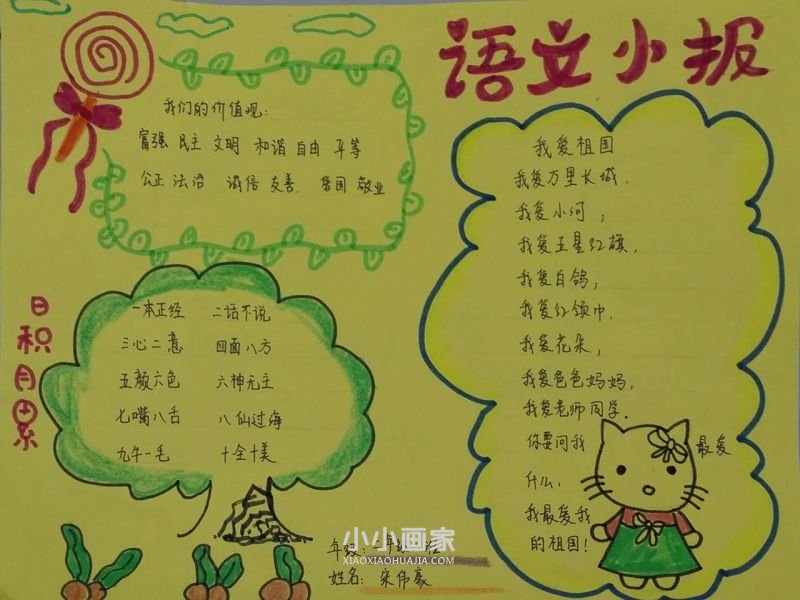 语文小报
我们的价值观:
富强 民主 文明 和谐 自由 平等
公正 法治 诚信 友善 爱国 敬业
日积月累
一本正经 二话不说
三心二意 四面八方
五颜六色 六神无主
七嘴八舌 八仙过海
九牛一毛 十全十美
我爱祖国
我爱万里长城.
我爱小河;
我爱五星红旗,
我爱白鸽;
我爱红领巾.
我爱花朵;
我爱爸爸妈妈,
我爱老师同学.
你要问我 最爱
什么,
我最爱我
的祖国!
年级:
姓名: 宋伟豪
小小画家
XIAOXIAOHUAJIA.COM